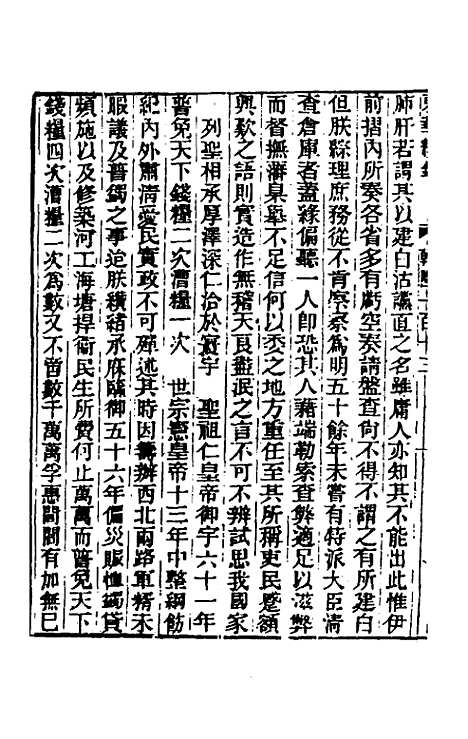 肺肝若謂其以建白沽讜直之名雖庸人亦知其不能出此惟伊
前摺內所奏各省多有虧空奏請盤查尙不得不謂之有所建白
但朕綜理庶務從不肯察察爲明五十餘年未嘗有特派大臣淸
查倉庫者蓋緣偏聽一人卽恐其人藉端勒索查弊適足以滋弊
而督撫藩臬豈不足信何以委之地方重任至其所稱吏民蹙額
興歎之語則實造作無稽天良盡泯之言不可不辨試思我國家
列聖相承厚澤深仁洽於寰宇　聖祖仁皇帝御宇六十一年
普免天下錢糧二次漕糧一次　世宗憲皇帝十三年中整綱飭
紀內外肅淸愛民實政不可殫述其時因籌辦西北兩路軍糈未
暇議及普蠲之事迨朕纘緒承庥臨御五十六年偏災賑恤蠲貸
頻施以及修築河工海塘捍衞民生所費何止萬萬而普免天下
錢糧四次漕糧二次爲數又不啻數千萬萬孚惠閭閻有加無已